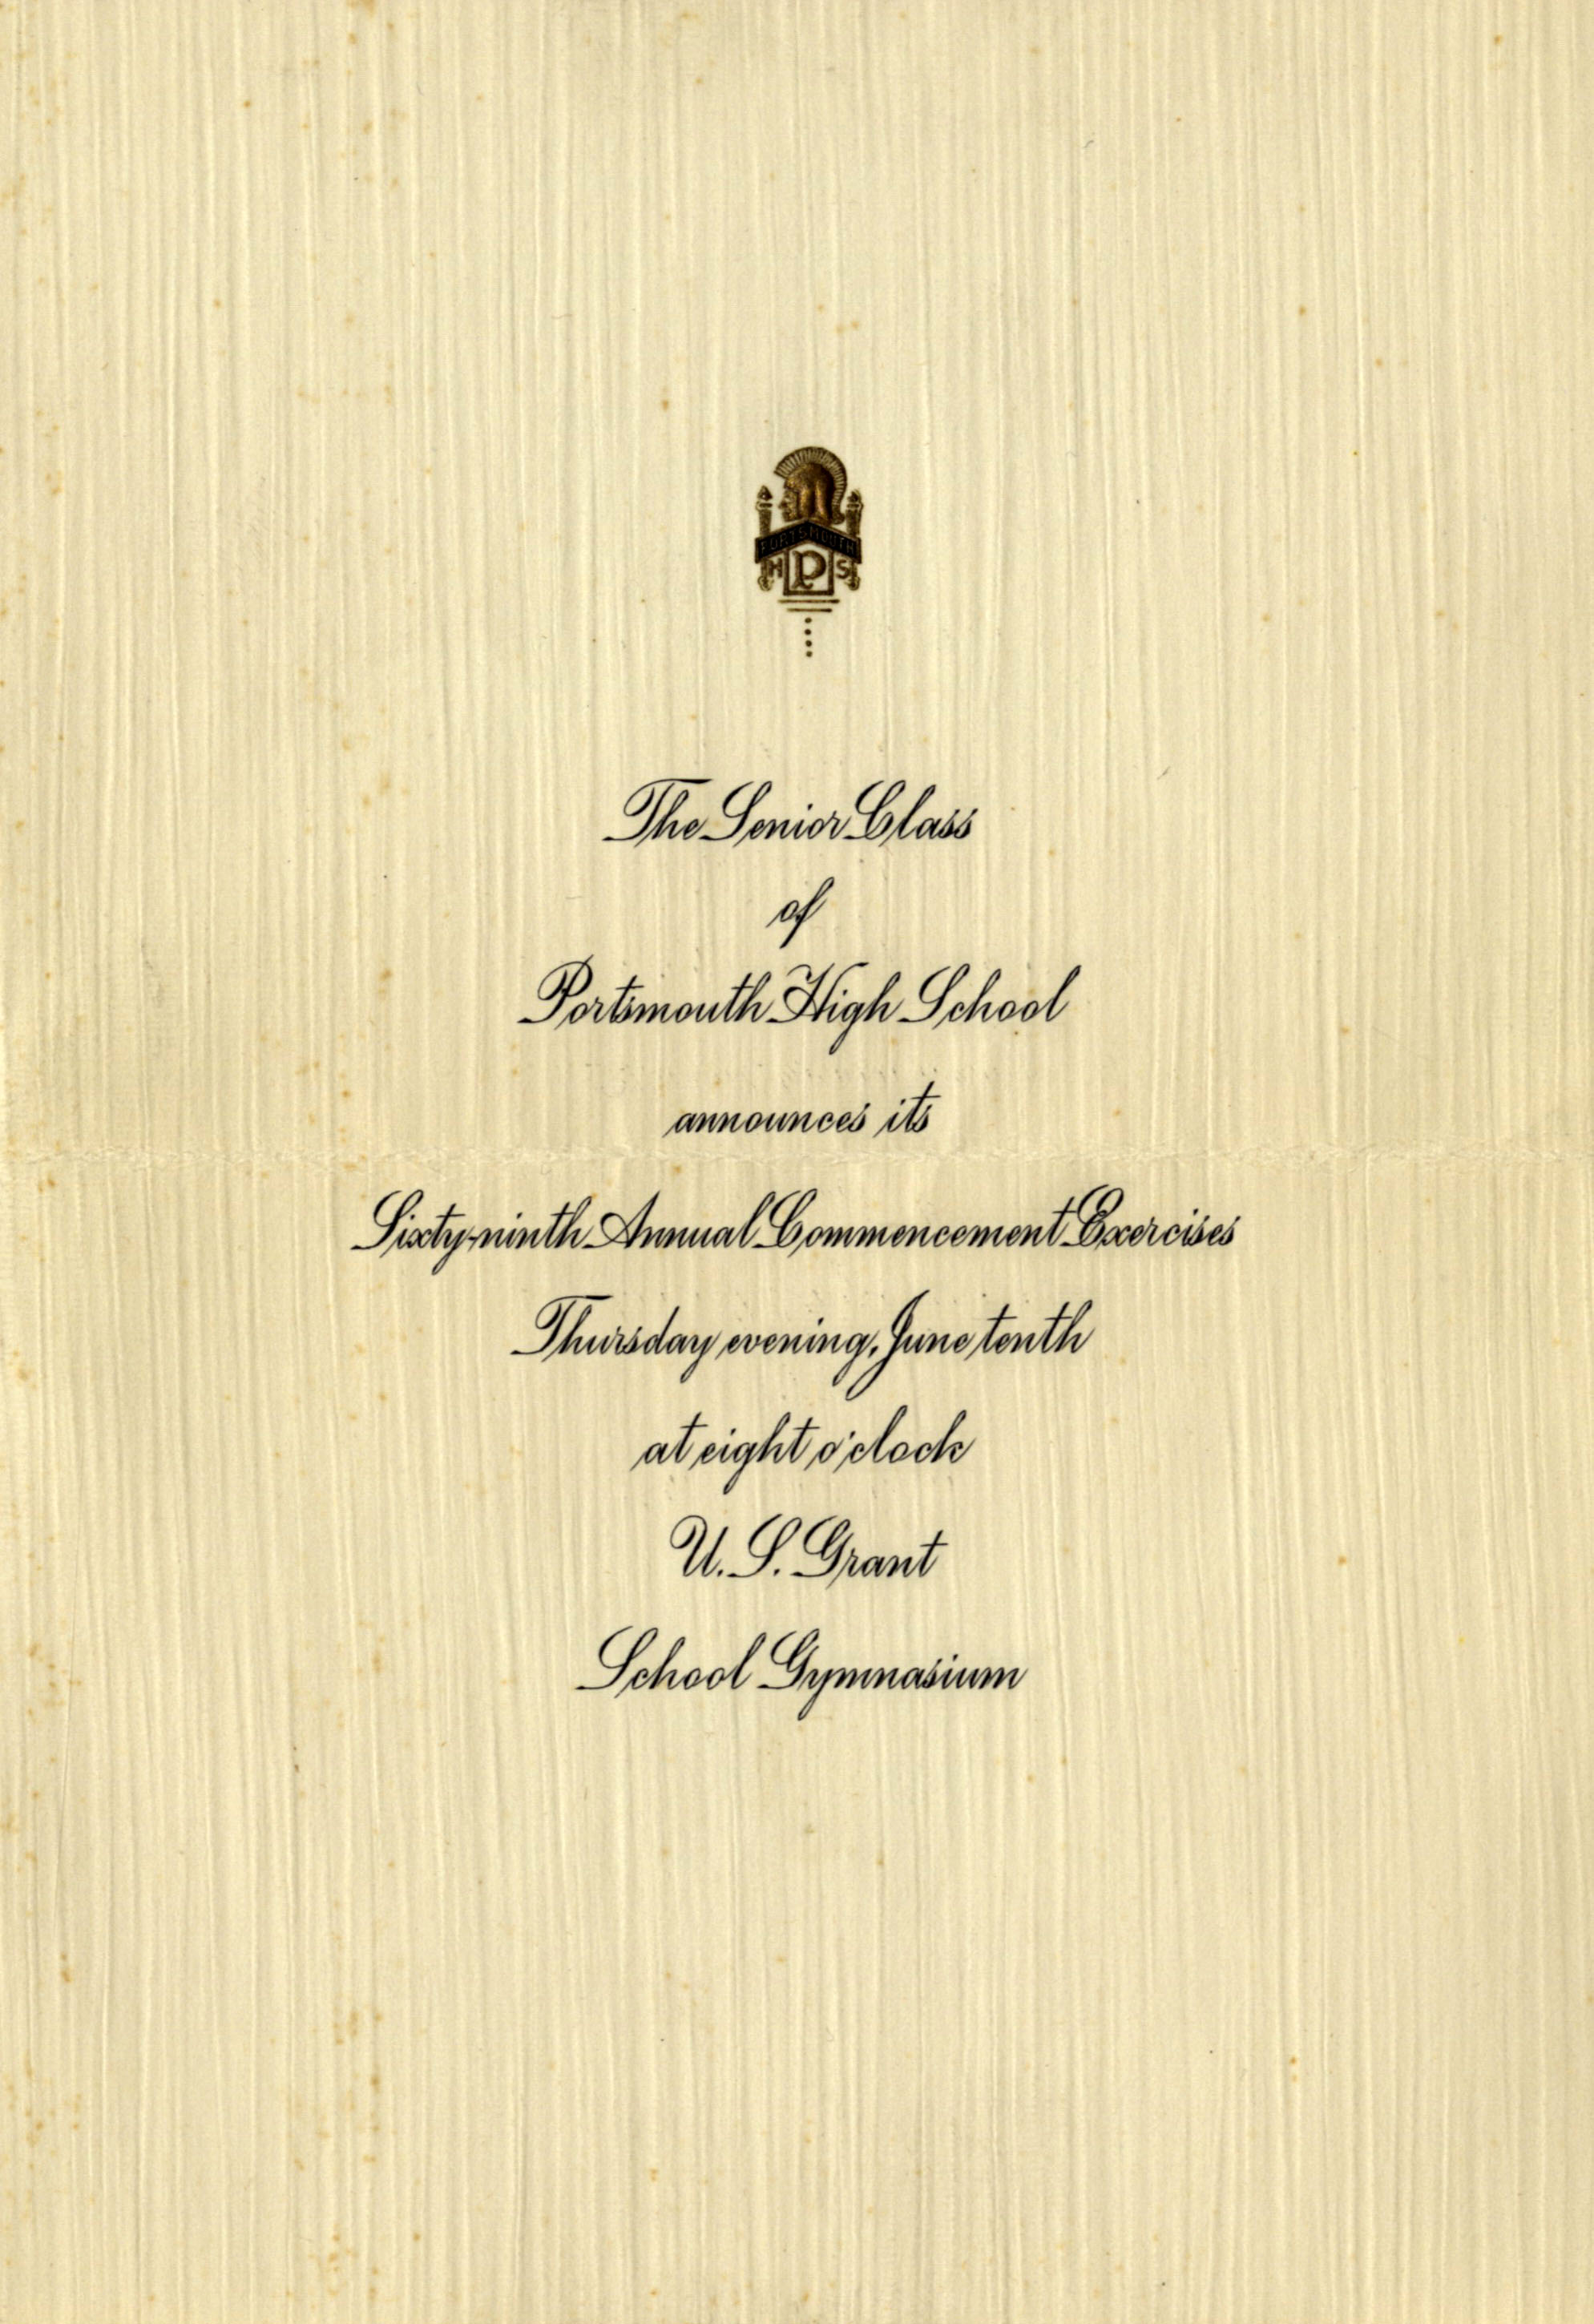 PORTSMOUTH
H P S
The Senior Class
of
Portsmouth High School
announces its
Sixty-ninth Annual Commencement Exercises
Thursday evening, June tenth
at eight o'clock
U. S. Grant
School Gymnasium